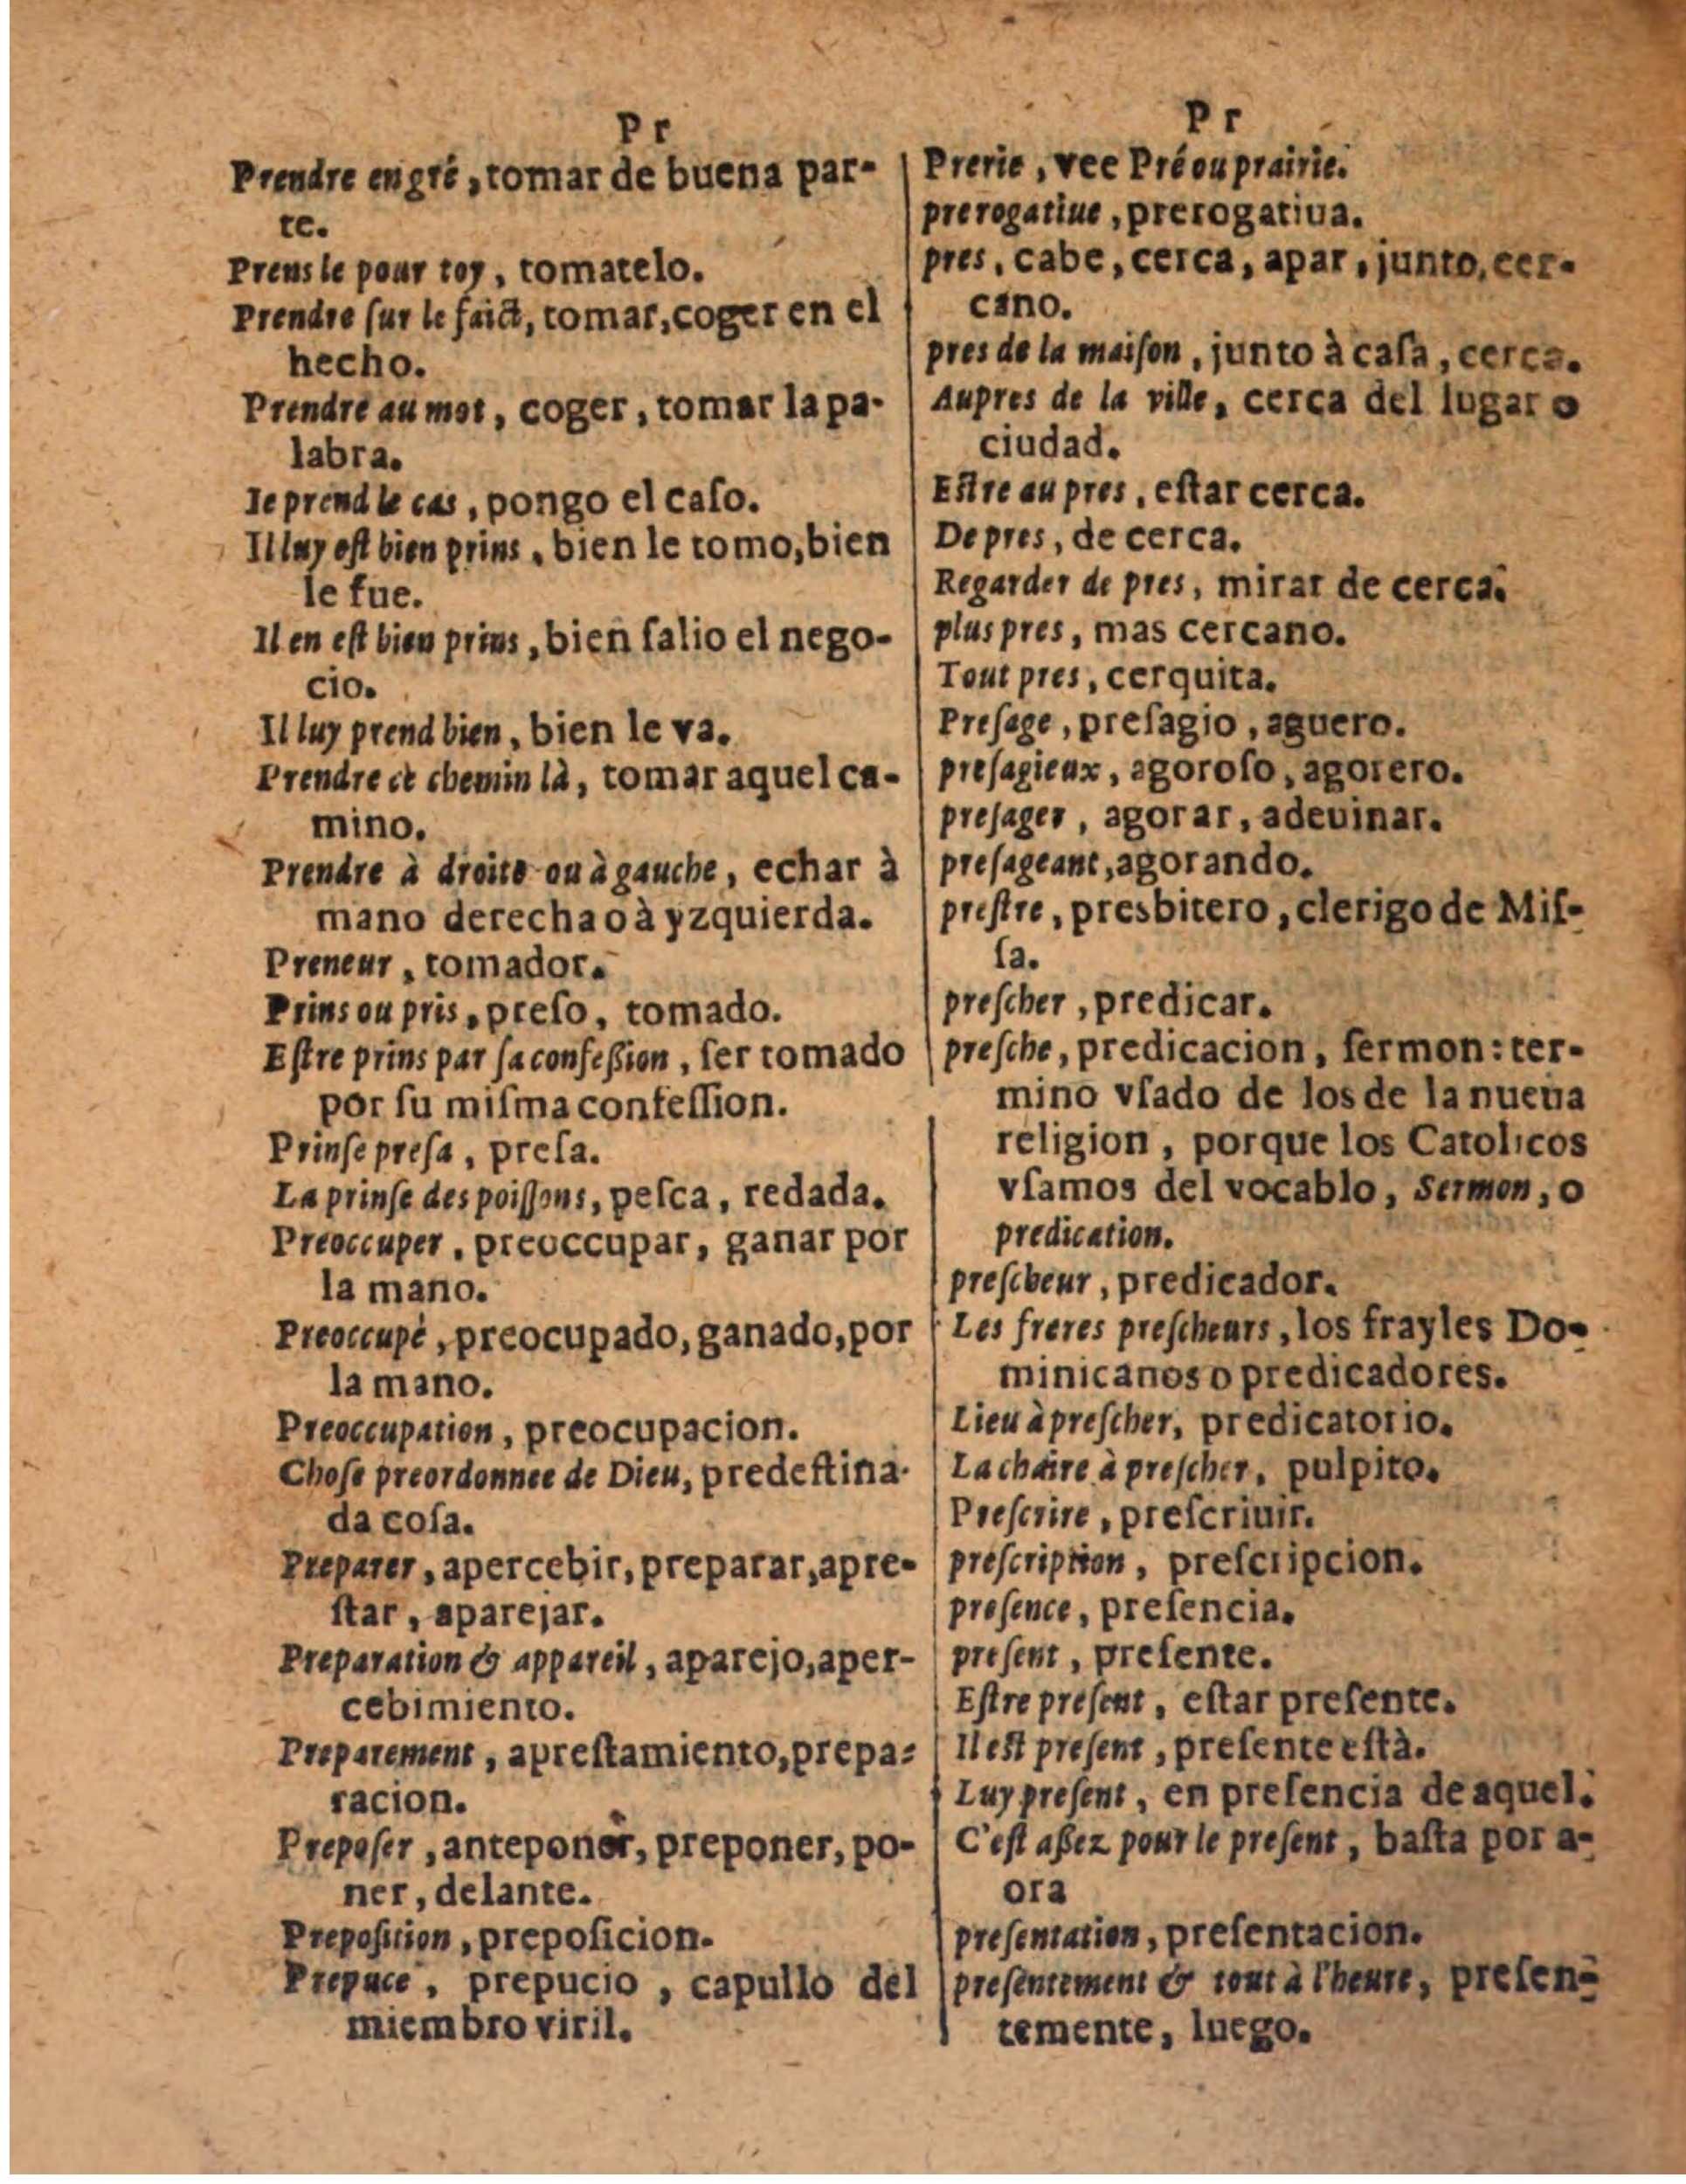 Pr
Prendre en gré, tomar de buena par-
te.
Prens le pour toy, tomatelo.
Prendre ſur le faict, tomar, coger en el
hecho.
Prendre au mot, coger, tomar la pa-
labra.
Ie prend le cas, pongo el caſo.
Il luy eſt bien prins, bien le tomo, bien
le fue.
Il en eſt bien prins, bien ſalio el nego-
cio.
Il luy prend bien, bien le va.
Prendre ce chemin là, tomar aquel ca-
mino.
Prendre à droite ou à gauche, echar à
mano derecha o à yzquierda.
Preneur, tomador.
Prins ou pris, preſo, tomado.
Eſtre prins par ſa confeßion, ſer tomado
por ſu miſma confeſſion.
Prinſe preſa, preſa.
La prinſe des poiſſons, peſca, redada.
Preoccuper, preoccupar, ganar por
la mano.
Preoccupé, preocupado, ganado, por
la mano.
Preoccupation, preocupacion.
Choſe preordonnee de Dieu, predeſtina-
da coſa.
Preparer, apercebir, preparar, apre-
ſtar, aparejar.
Preparation & appareil, aparejo, aper-
cebimiento.
Preparement, apreſtamiento, prepa-
racion.
Prepoſer, anteponer, preponer, po-
ner, delante.
Prepoſition, prepoſicion.
Prepuce, prepucio, capullo del
miembro viril.
Pr
Prerie, vee Pré ou prairie.
prerogatiue, prerogatiua.
pres, cabe, cerca, apar, junto, cer-
cano.
pres de la maiſon, junto à caſa, cerca.
Aupres de la ville, cerca del lugar o
ciudad.
Eſtre au pres, eſtar cerca.
De pres, de cerca.
Regarder de pres, mirar de cerca.
plus pres, mas cercano.
Tout pres, cerquita.
Preſage, preſagio, aguero.
preſagieux, agoroſo, agorero.
preſager, agorar, adeuinar.
preſageant, agorando.
preſtre, presbitero, clerigo de Miſ-
ſa.
preſcher, predicar.
preſche, predicacion, ſermon: ter-
mino vſado de los de la nueua
religion, porque los Catolicos
vſamos del vocablo, Sermon, o
predication.
preſcheur, predicador.
Les freres preſcheurs, los frayles Do-
minicanos o predicadores.
Lieu à preſcher, predicatorio.
La chaire à preſcher, pulpito.
Preſcrire, preſcriuir.
preſcription, preſcripcion.
preſence, preſencia.
preſent, preſente.
Eſtre preſent, eſtar preſente.
Il eſt preſent, preſente eſtà.
Luy preſent, en preſencia de aquel.
C'eſt aßez pour le preſent, baſta por a-
ora
preſentation, preſentacion.
preſentement & tout à l'heure, preſen-
temente, luego.